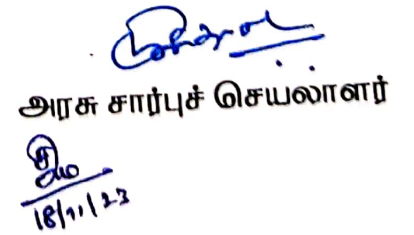 அரசு சார்புச் செயலாளர்
18/11/23